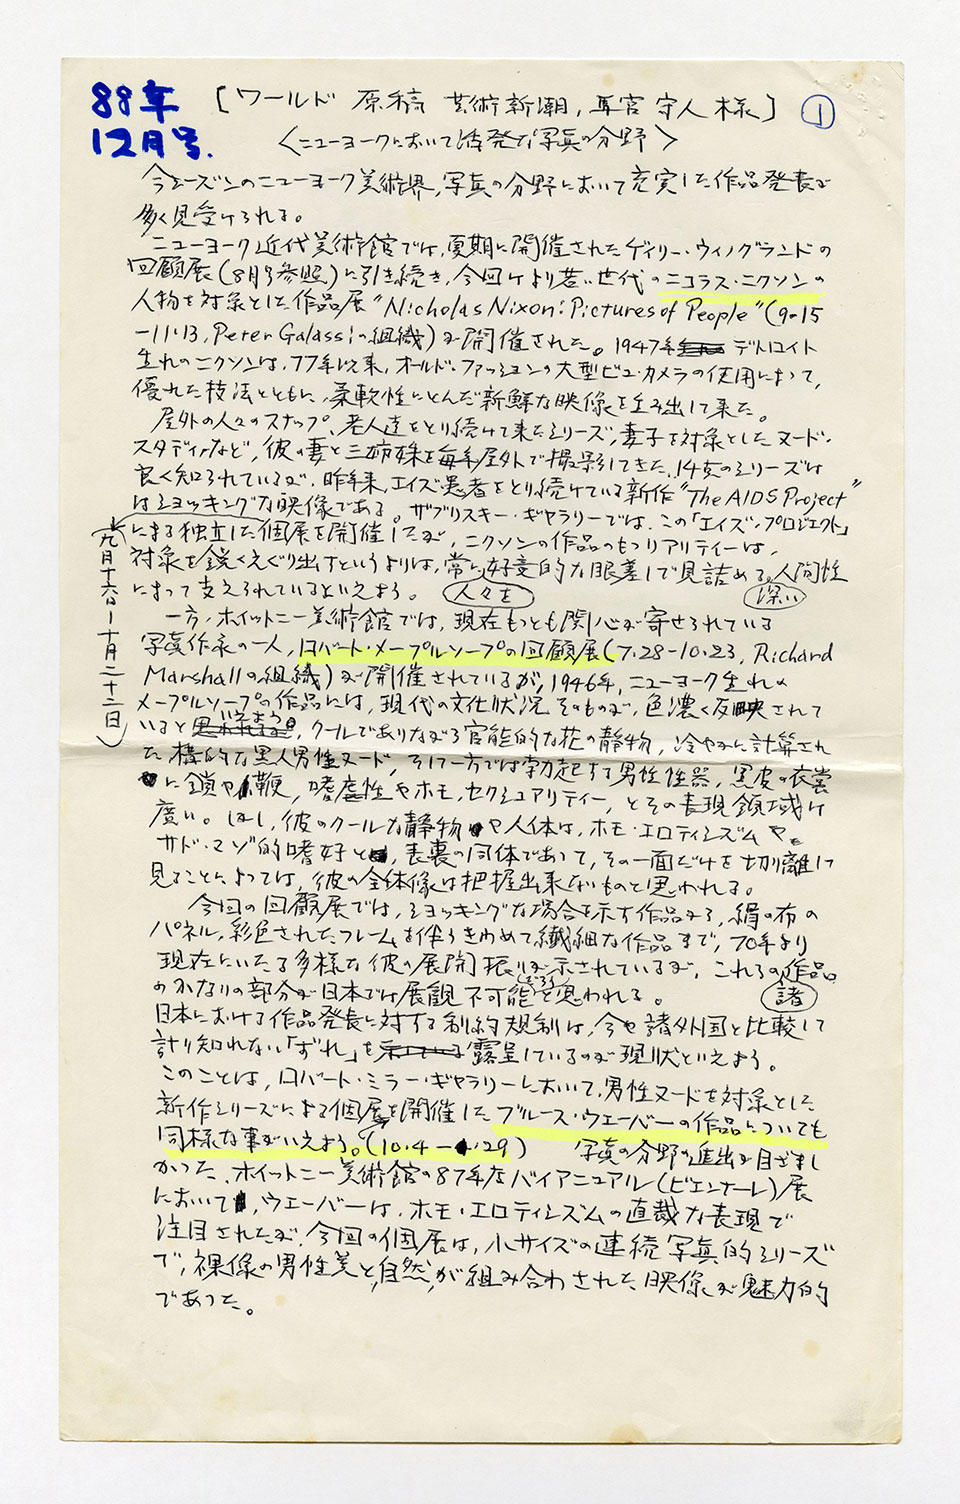 88年
12月号.
[ワールド 原稿 芸術新潮, 守人様] ①
〈ニューヨークにおいて活発な写真の分野〉
今シーズンのニューヨーク美術界, 写真の分野において充実した作品発表が
多く見受けられる。
ニューヨーク近代美術館では, 夏期に開催されたゲイリー・ウィノグランドの
回顧展(8月号参照)に引き続き, 今回はより若い世代のニコラス・ニクソンの
人物を対象とした作品展"Nicholas Nixon: Pictures of People"(9・15
-11・13, Peter Galassiの組織)が開催された。1947年デトロイト
生れのニクソンは, 77年以来, オールド・ファッションの大型ビュ・カメラの使用によって,
優れた技法とともに, 柔軟性にとんだ新鮮な映像を生み出して来た。
屋外の人々のスナップ, 老人達をとり続けて来たシリーズ, 妻子を対象としたヌード・
スタディなど, 彼の妻と三姉妹を毎年屋外で撮影してきた, 14点のシリーズは
良く知られているが, 昨年来, エイズ患者をとり続けている新作"The AIDS Project"
はショッキングな映像である。ザブリスキー・ギャラリーでは, この「エイズ・プロジェクト」
による独立した個展を開催したが, ニクソンの作品のもつリアリティーは,
対象を鋭くえぐり出すというよりは, 常に人々を好意的な眼差しで見詰める, 深い人間性
によって支えられているといえよう。
(九月十六日-十月二十二日)
一方・ホイットニー美術館では, 現在もっとも関心が寄せられている
写真作家の一人, ロバート・メープルソープの回顧展(7.28-10.23, Richard
Marshallの組織)が開催されているが, 1946年, ニューヨーク生れの
メープルソープの作品には, 現代の文化状況そのものが, 色濃く反映されて
いるといえよう。クールでありながら官能的な花の静物, 冷ややかに計算され
た構的な黒人男性ヌード, そして一方では勃起する男性性器, 黒皮の衣裳
に鎖や鞭, 嗜虐性やホモ・セクシュアリティー, とその表現領域は
広い。しかし, 彼のクールな静物や人体は, ホモ・エロティシズムや
サド・マゾ的嗜好と, 表裏の同体であって, その一面だけを切離して
見ることによっては, 彼の全体像は把握出来ないものと思われる。
今回の回顧展では, ショッキングな場合を示す作品から, 絹の布の
パネル, 彩色されたフレームを伴うきわめて繊細な作品まで, 70年より
現在にいたる多様な彼の展開振りが示されているが, これらの諸作品
のかなりの部分が日本では展観不可能だろうと思われる。
日本における作品発表に対する制約規制は, 今や諸外国と比較して
計り知れない「ずれ」を露呈しているのが現状といえよう。
このことは, ロバート・ミラー・ギャラリーにおいて, 男性ヌードを対象とした
新作シリーズによる個展を開催したブルース・ウェーバーの作品についても
同様な事がいえよう。(10.4-29) 写真の分野の進出が目ざまし
かった, ホイットニー美術館の87年度バイアニュアル(ビエンナーレ)展
において, ウエーバーは, ホモ・エロティシズムの直裁な表現で
注目されたが, 今回の個展は, 小サイズの連続写真的シリーズ
で, 裸像の男性美と, 自然, が組み合わされた映像が魅力的
であった。